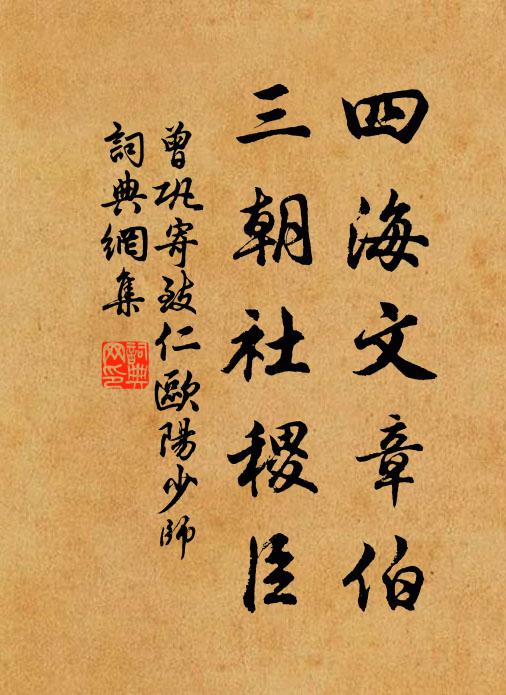 四海文章伯
三朝社稷臣
曾巩寄致仁歐陽少師
詞典網集
詞典網印